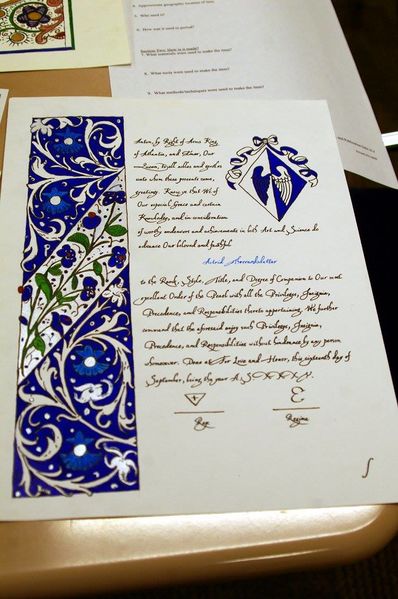 6. Approximate geographic location of item.
5. Who used it?
6. How was it used in period?
Section Two: How is it made?
7. What materials were used to make the item?
8. What tools were used to make the item?
9. What methods/techniques were used to make the item?
Anton, by Right of Arms King
of Atlantia, and Elinor, Our
Queen, To all nobles and gentles
unto whom these presents come,
greeting. Know ye that We of
Our especial Grace and certain
Knowledge, and in consideration
of worthy endeavors and achievements in both Art and Science do
advance Our beloved and faithful
Astrid
to the Rank, Style, Title, and Degree of Companion to Our most
excellent Order of the Pearl with all the Privileges, Insignia,
Precedence, and Responsibilities thereto appertaining. We further
command that the aforesaid enjoy such Privileges, Insignia,
Precedence, and Responsibilities without hindrance by any person
whomsoever. Done at For Love and Honor, this sixteenth day of
September, being the year A.S.
Rex
Regina